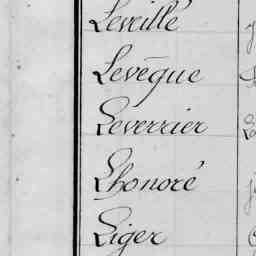 Leveillé
Levêque
Leverrier
Lhonoré
Liger